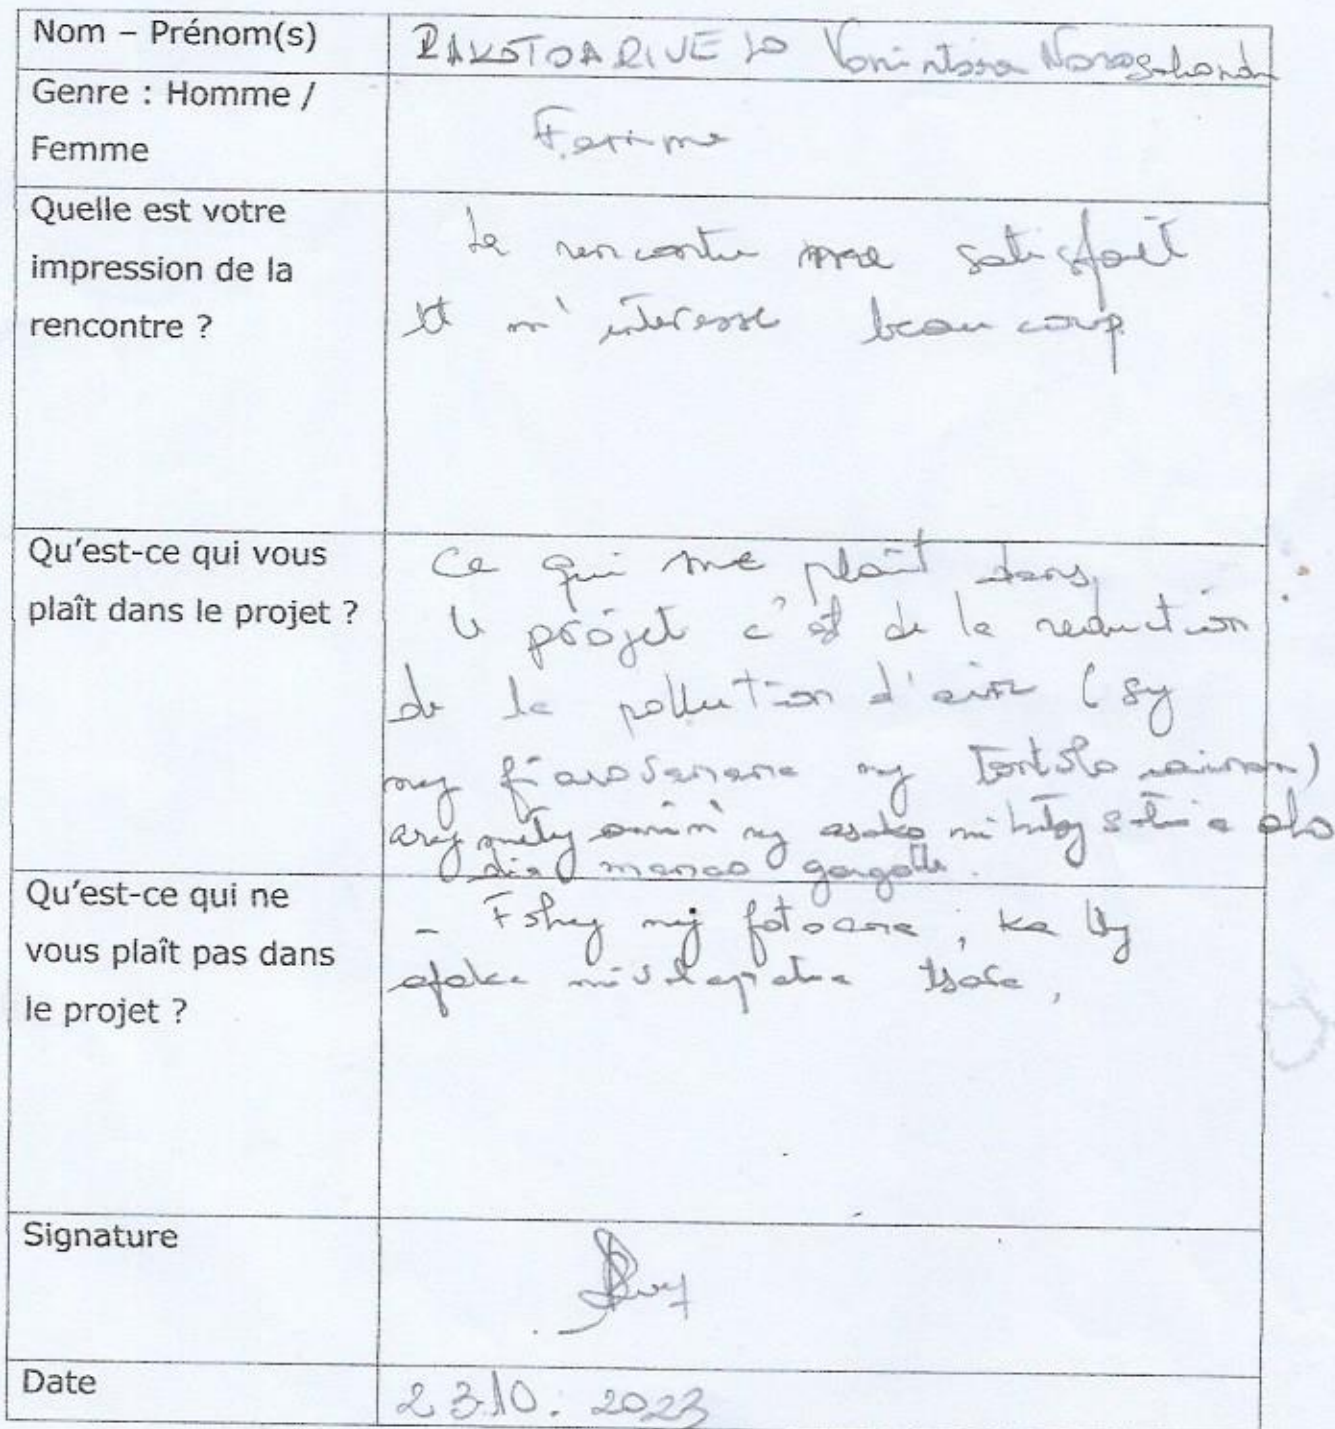 Nom – Prénom(s)
RAKOTOARIVELO
Genre : Homme /
Femme
Femme
Quelle est votre
impression de la
rencontre ?
La rencontre me satisfait
et m'interesse beaucoup
Qu'est-ce qui vous
plaît dans le projet ?
Ce qui me plaît dans
le projet c'est de la reduction
de la pollution d'air (sy
ny fiarovana ny tontolo
ary ny asako
dia manao gargote.
Qu'est-ce qui ne
vous plaît pas dans
le projet ?
- ny fotoana, ka
afaka tsara,
Signature
Date
23.10.2023